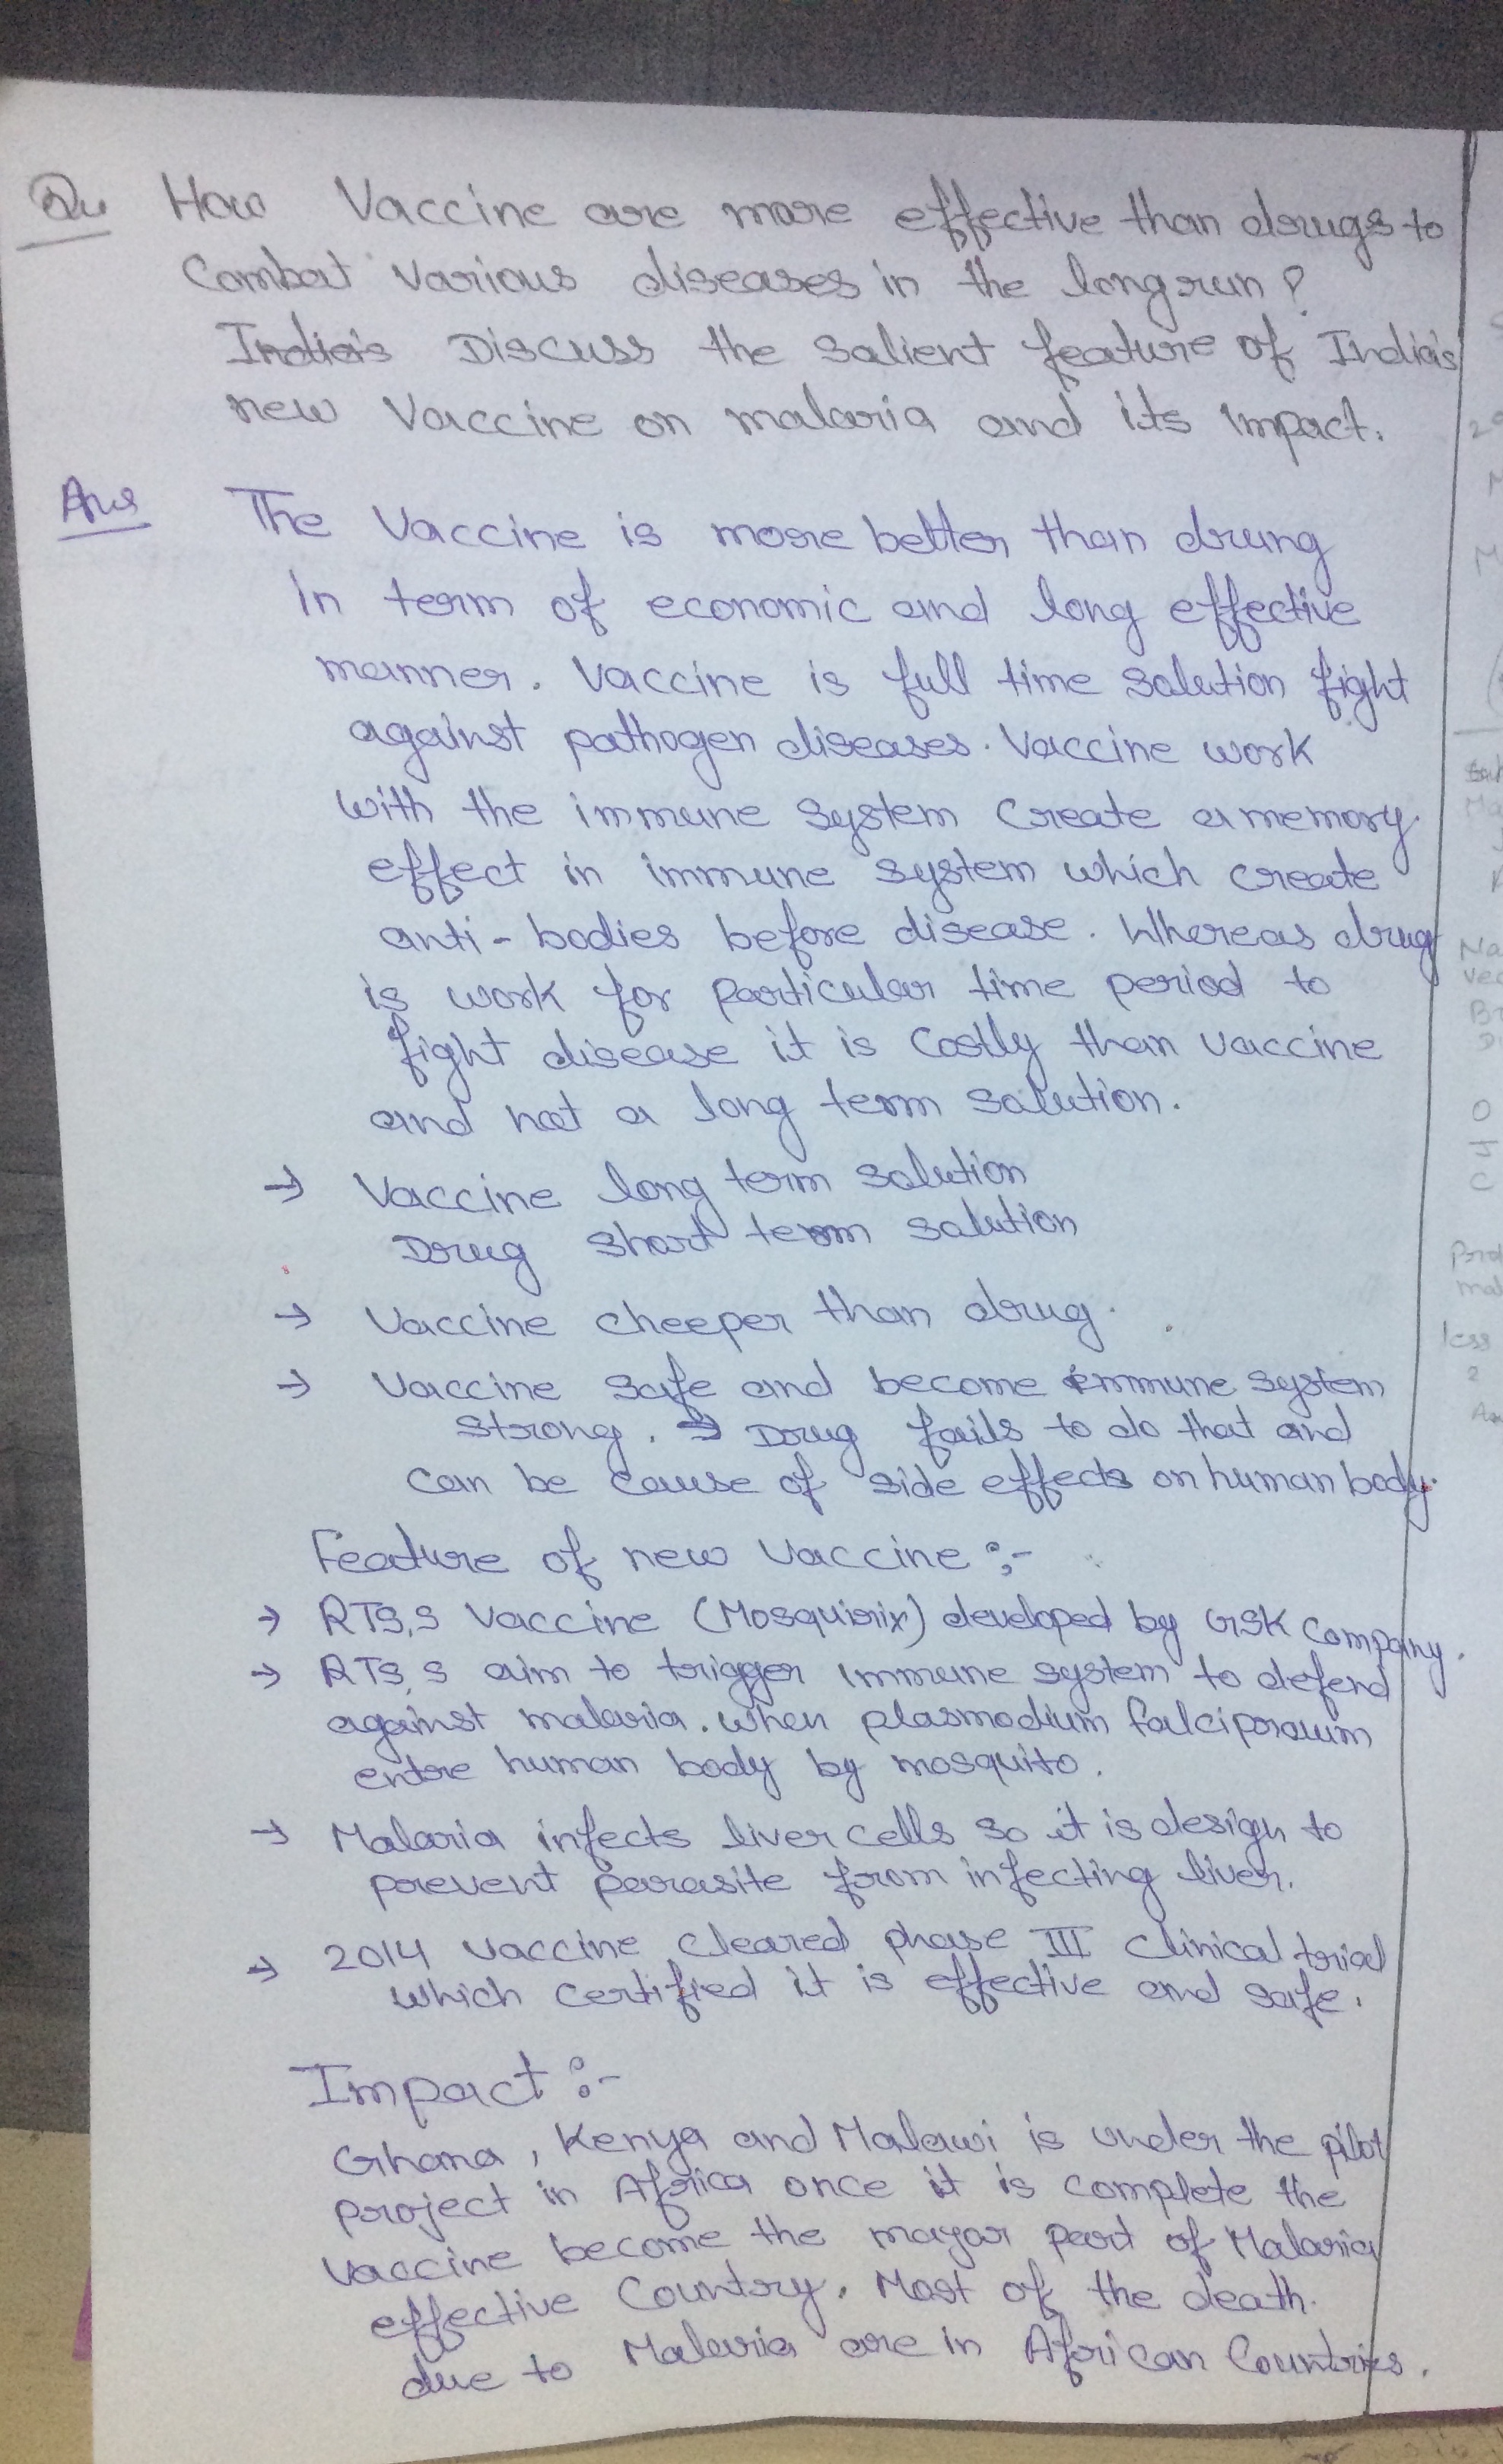 Qu How Vaccine are more effective than drugs to
Combat various diseases in the long run?
India's Discuss the salient feature of India's
new Vaccine on malaria and its impact.
Ans The Vaccine is more better than drung
In term of economic and long effective
manner. Vaccine is full time solution fight
against pathogen diseases. Vaccine work
with the immune system create a memory
effect in immune system which create
anti-bodies before disease. Whereas drug
is work for particular time period to
fight disease it is costly than vaccine
and not a long term solution.
→ Vaccine long term solution
Drug short term solution
→ Vaccine cheeper than drug.
→ Vaccine safe and become immune system
strong. → Drug fails to do that and
can be cause of side effects on human body.
Feature of new Vaccine :-
→ RTS,S Vaccine (Mosquirix) developed by GSK company.
→ RTS,S aim to trigger immune system to defend
against malaria. when plasmodium falciparaum
entre human body by mosquito.
→ Malaria infects liver cells so it is design to
prevent parasite from infecting liver.
→ 2014 vaccine cleared phase III clinical trial
which certified it is effective and safe.
Impact :-
Ghana, Kenya and Malawi is under the pilot
project in Africa once it is complete the
vaccine become the mayar part of Malaria
effective Country. Most of the death
due to Malaria are in African Countries.